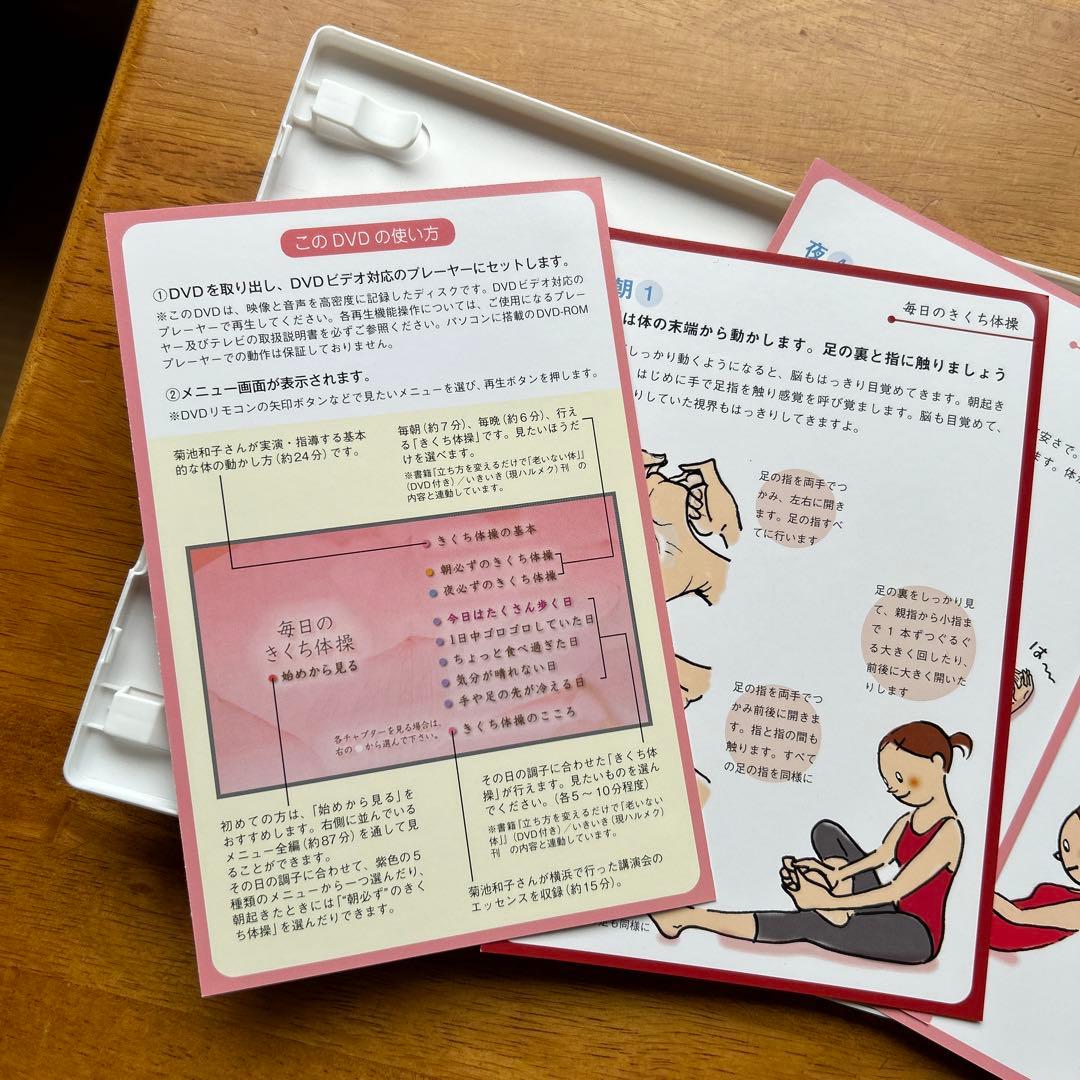 このDVDの使い方
①DVDを取り出し、DVDビデオ対応のプレーヤーにセットします。
※このDVDは、映像と音声を高密度に記録したディスクです。DVDビデオ対応の
プレーヤーで再生してください。各再生機能操作については、ご使用になるプレー
ヤー及びテレビの取扱説明書を必ずご参照ください。パソコンに搭載のDVD-ROM
プレーヤーでの動作は保証しておりません。
②メニュー画面が表示されます。
※DVDリモコンの矢印ボタンなどで見たいメニューを選び、再生ボタンを押します。
菊池和子さんが実演・指導する基本
的な体の動かし方(約24分)です。
毎朝(約7分)、毎晩(約6分)、行え
る「きくち体操」です。見たいほうだ
けを選べます。
※書籍『立ち方を変えるだけで「老いない体」』
(DVD付き)/いきいき(現ハルメク)刊 の
内容と連動しています。
きくち体操の基本
朝必ずのきくち体操
夜必ずのきくち体操
今日はたくさん歩く日
1日中ゴロゴロしていた日
ちょっと食べ過ぎた日
気分が晴れない日
手や足の先が冷える日
きくち体操のこころ
毎日の
きくち体操
始めから見る
各チャプターを見る場合は、
右の●から選んで下さい。
初めての方は、「始めから見る」を
おすすめします。右側に並んでいる
メニュー全編(約87分)を通して見
ることができます。
その日の調子に合わせて、紫色の5
種類のメニューから一つ選んだり、
朝起きたときには「"朝必ず"のきく
ち体操」を選んだりできます。
その日の調子に合わせた「きくち体
操」が行えます。見たいものを選ん
でください。(各5~10分程度)
※書籍『立ち方を変えるだけで「老いない
体」』(DVD付き)/いきいき(現ハルメク)
刊 の内容と連動しています。
菊池和子さんが横浜で行った講演会の
エッセンスを収録(約15分)。
朝1
毎日のきくち体操
は体の末端から動かします。足の裏と指に触りましょう
しっかり動くようになると、脳もはっきり目覚めてきます。朝起き
はじめに手で足指を触り感覚を呼び覚まします。脳も目覚めて、
りしていた視界もはっきりしてきますよ。
足の指を両手でつ
かみ、左右に開き
ます。足の指すべ
てに行います
足の裏をしっかり見
て、親指から小指ま
で1本ずつぐるぐ
る大きく回したり、
前後に大きく開いた
りします
足の指を両手でつ
かみ前後に開きま
す。指と指の間も
触ります。すべて
の足の指を同様に
足も同様に
夜
は〜